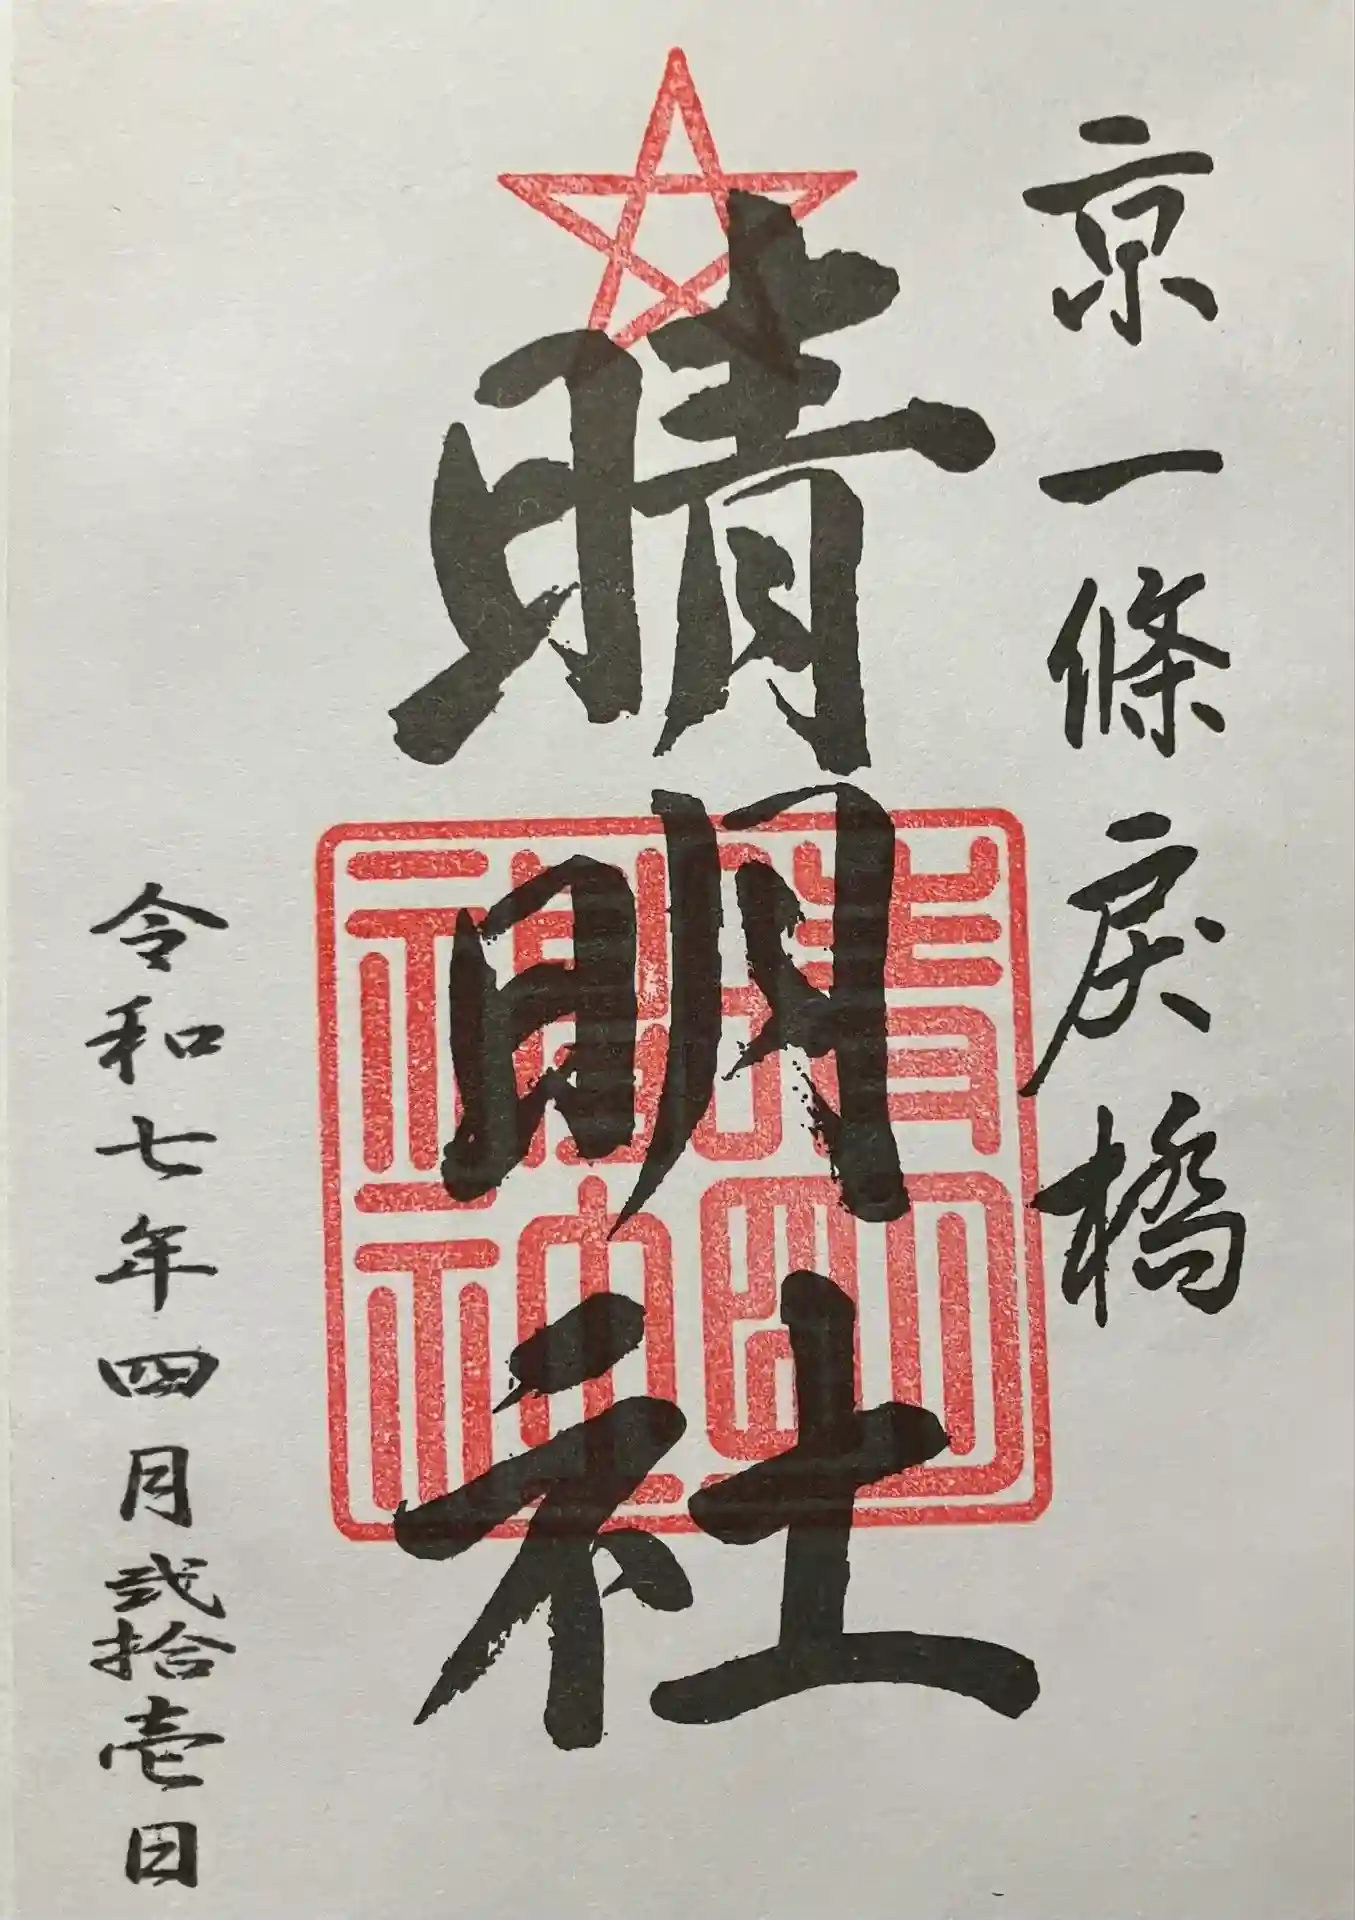 京一條戻橋
晴明社
晴明
神社
令和七年四月弐拾壱日